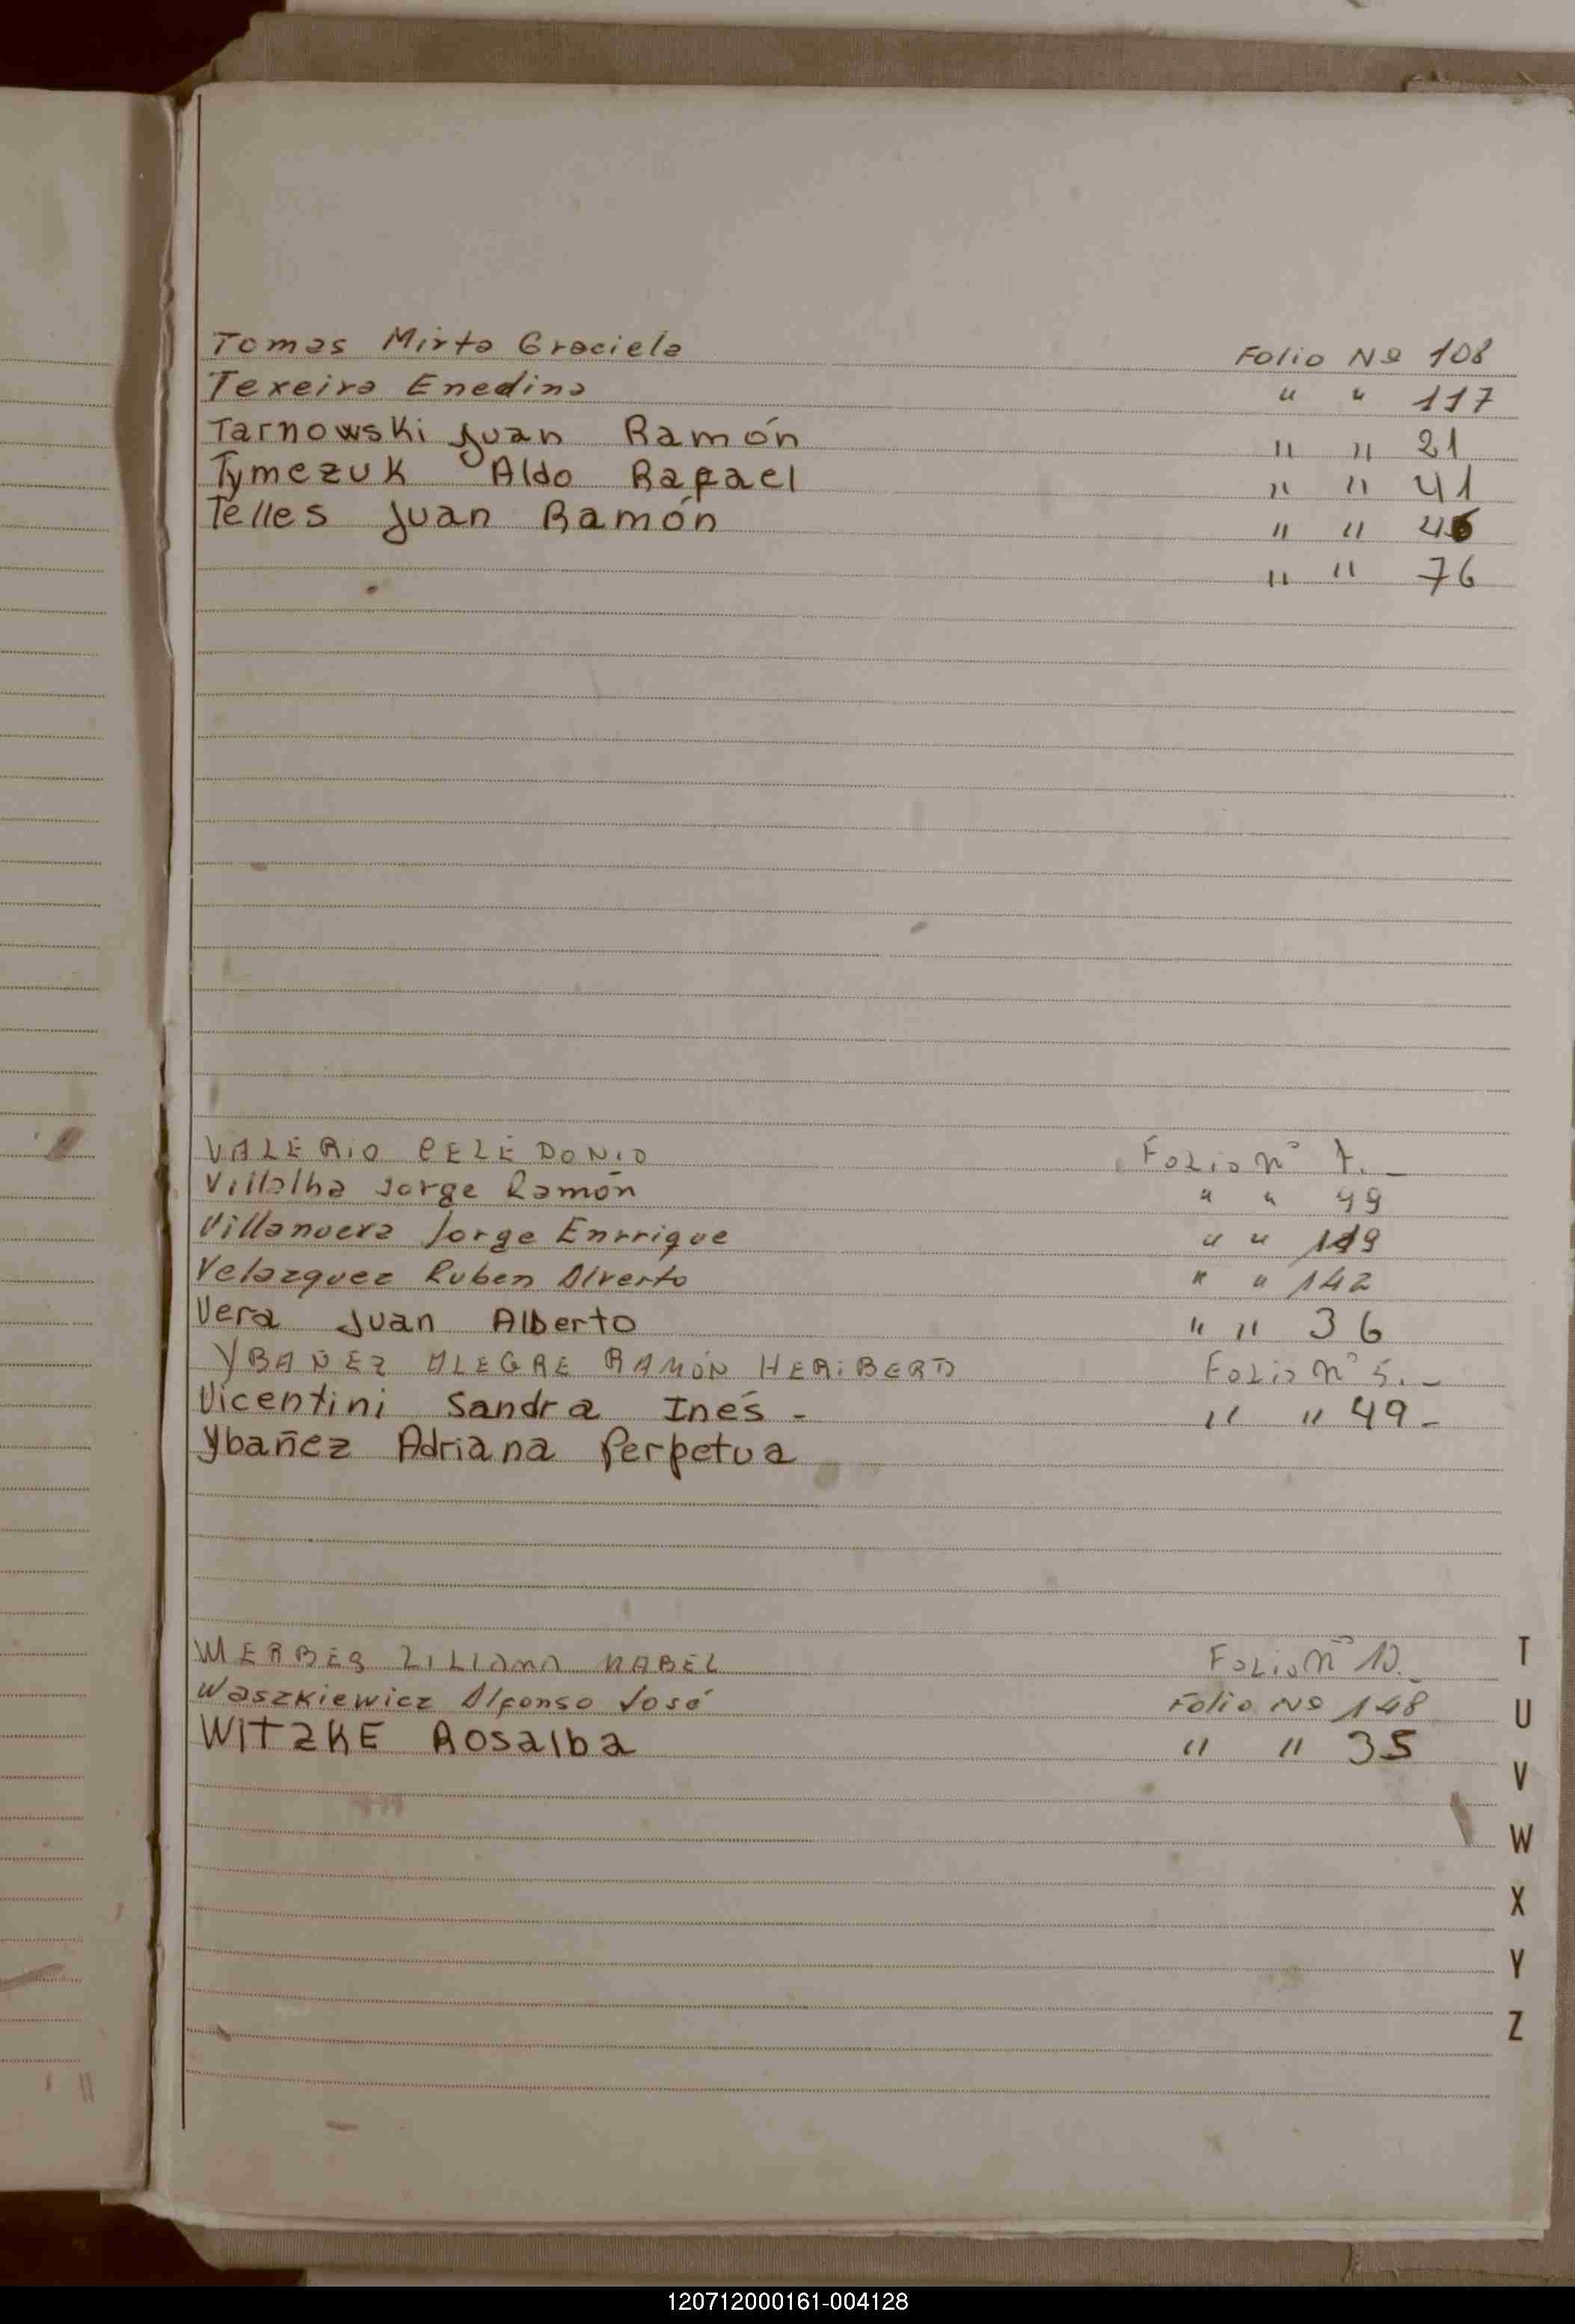 Tomas Mirta Graciela Folio Nº 108
Texeira Enedina " " 117
Tarnowski Juan Ramón " " 21
Tymczuk Aldo Rafael " " 41
Telles Juan Ramón " " 46
" " 76
VALERIO CELEDONIO Folio nº 7.-
Villalba Jorge Ramón " " 99
Villanueva Jorge Enrrique " " 119
Velazquez Ruben Alverto " " 142
Vera Juan Alberto " " 36
YBAÑEZ ALEGRE RAMÓN HERIBERTO Folio nº 5.-
Vicentini Sandra Inés - " " 49-
Ybañez Adriana Perpetua
WERBES LILIANA MABEL Folio nº 10.-
Waszkiewicz Alfonso José Folio Nº 148
WITZKE Rosalba " " 35
T
U
V
W
X
Y
Z
120712000161-004128